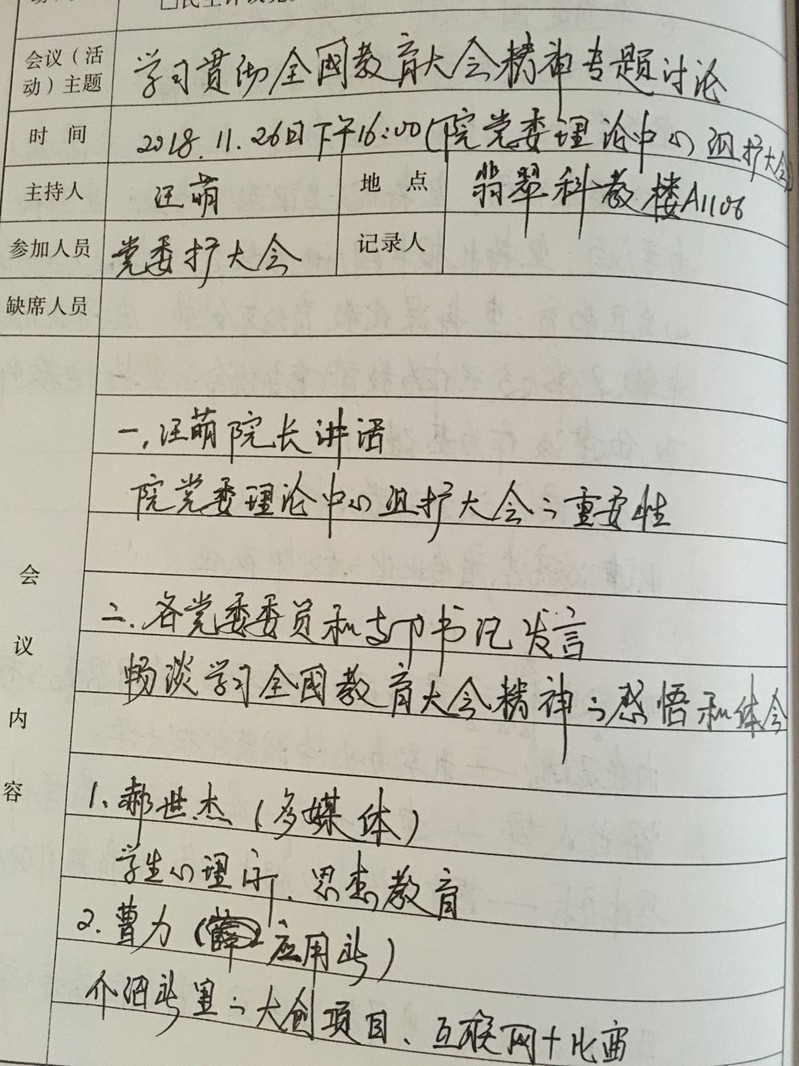 □民主评议党
会议（活动）主题 学习贯彻全国教育大会精神专题讨论
时 间 2018.11.26日下午16:00（院党委理论中心组扩大会）
主持人 汪萌 地 点 翡翠科教楼A1106
参加人员 党委扩大会 记录人
缺席人员
会议内容
一，汪萌院长讲话
院党委理论中心组扩大会之重要性
二、各党委委员和支部书记发言
畅谈学习全国教育大会精神之感悟和体会
1、郝世杰（多媒体）
学生心理、思想教育
2、曹力（应用所）
介绍所里之大创项目、互联网+比赛